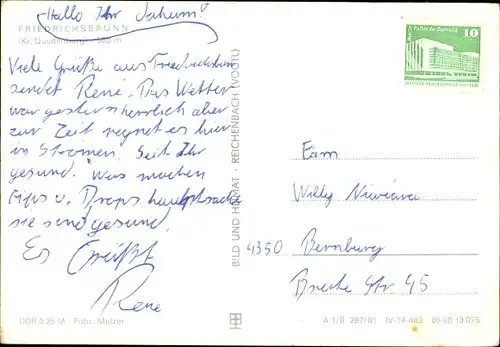 Hallo Ihr daheim!
FRIEDRICHSBRUNN
(Kr. Quedlinburg) · 580 m
Viele Grüße aus Friedrichsbrunn
sendet René. Das Wetter
war gestern herrlich aber
zur Zeit regnet es hier
in Strömen. Seit Ihr
gesund. Was machen
Fips u. Drops hauptsache
sie sind gesund.
Es Grüßt
Rene
DDR 0,25 M Foto: Melzer
BILD UND HEIMAT · REICHENBACH (VOGTL)
10
Fam
Willy
4350 Bernburg
Breite Str 45
A 1/B 287/81 IV-14-483 06 08 13 075